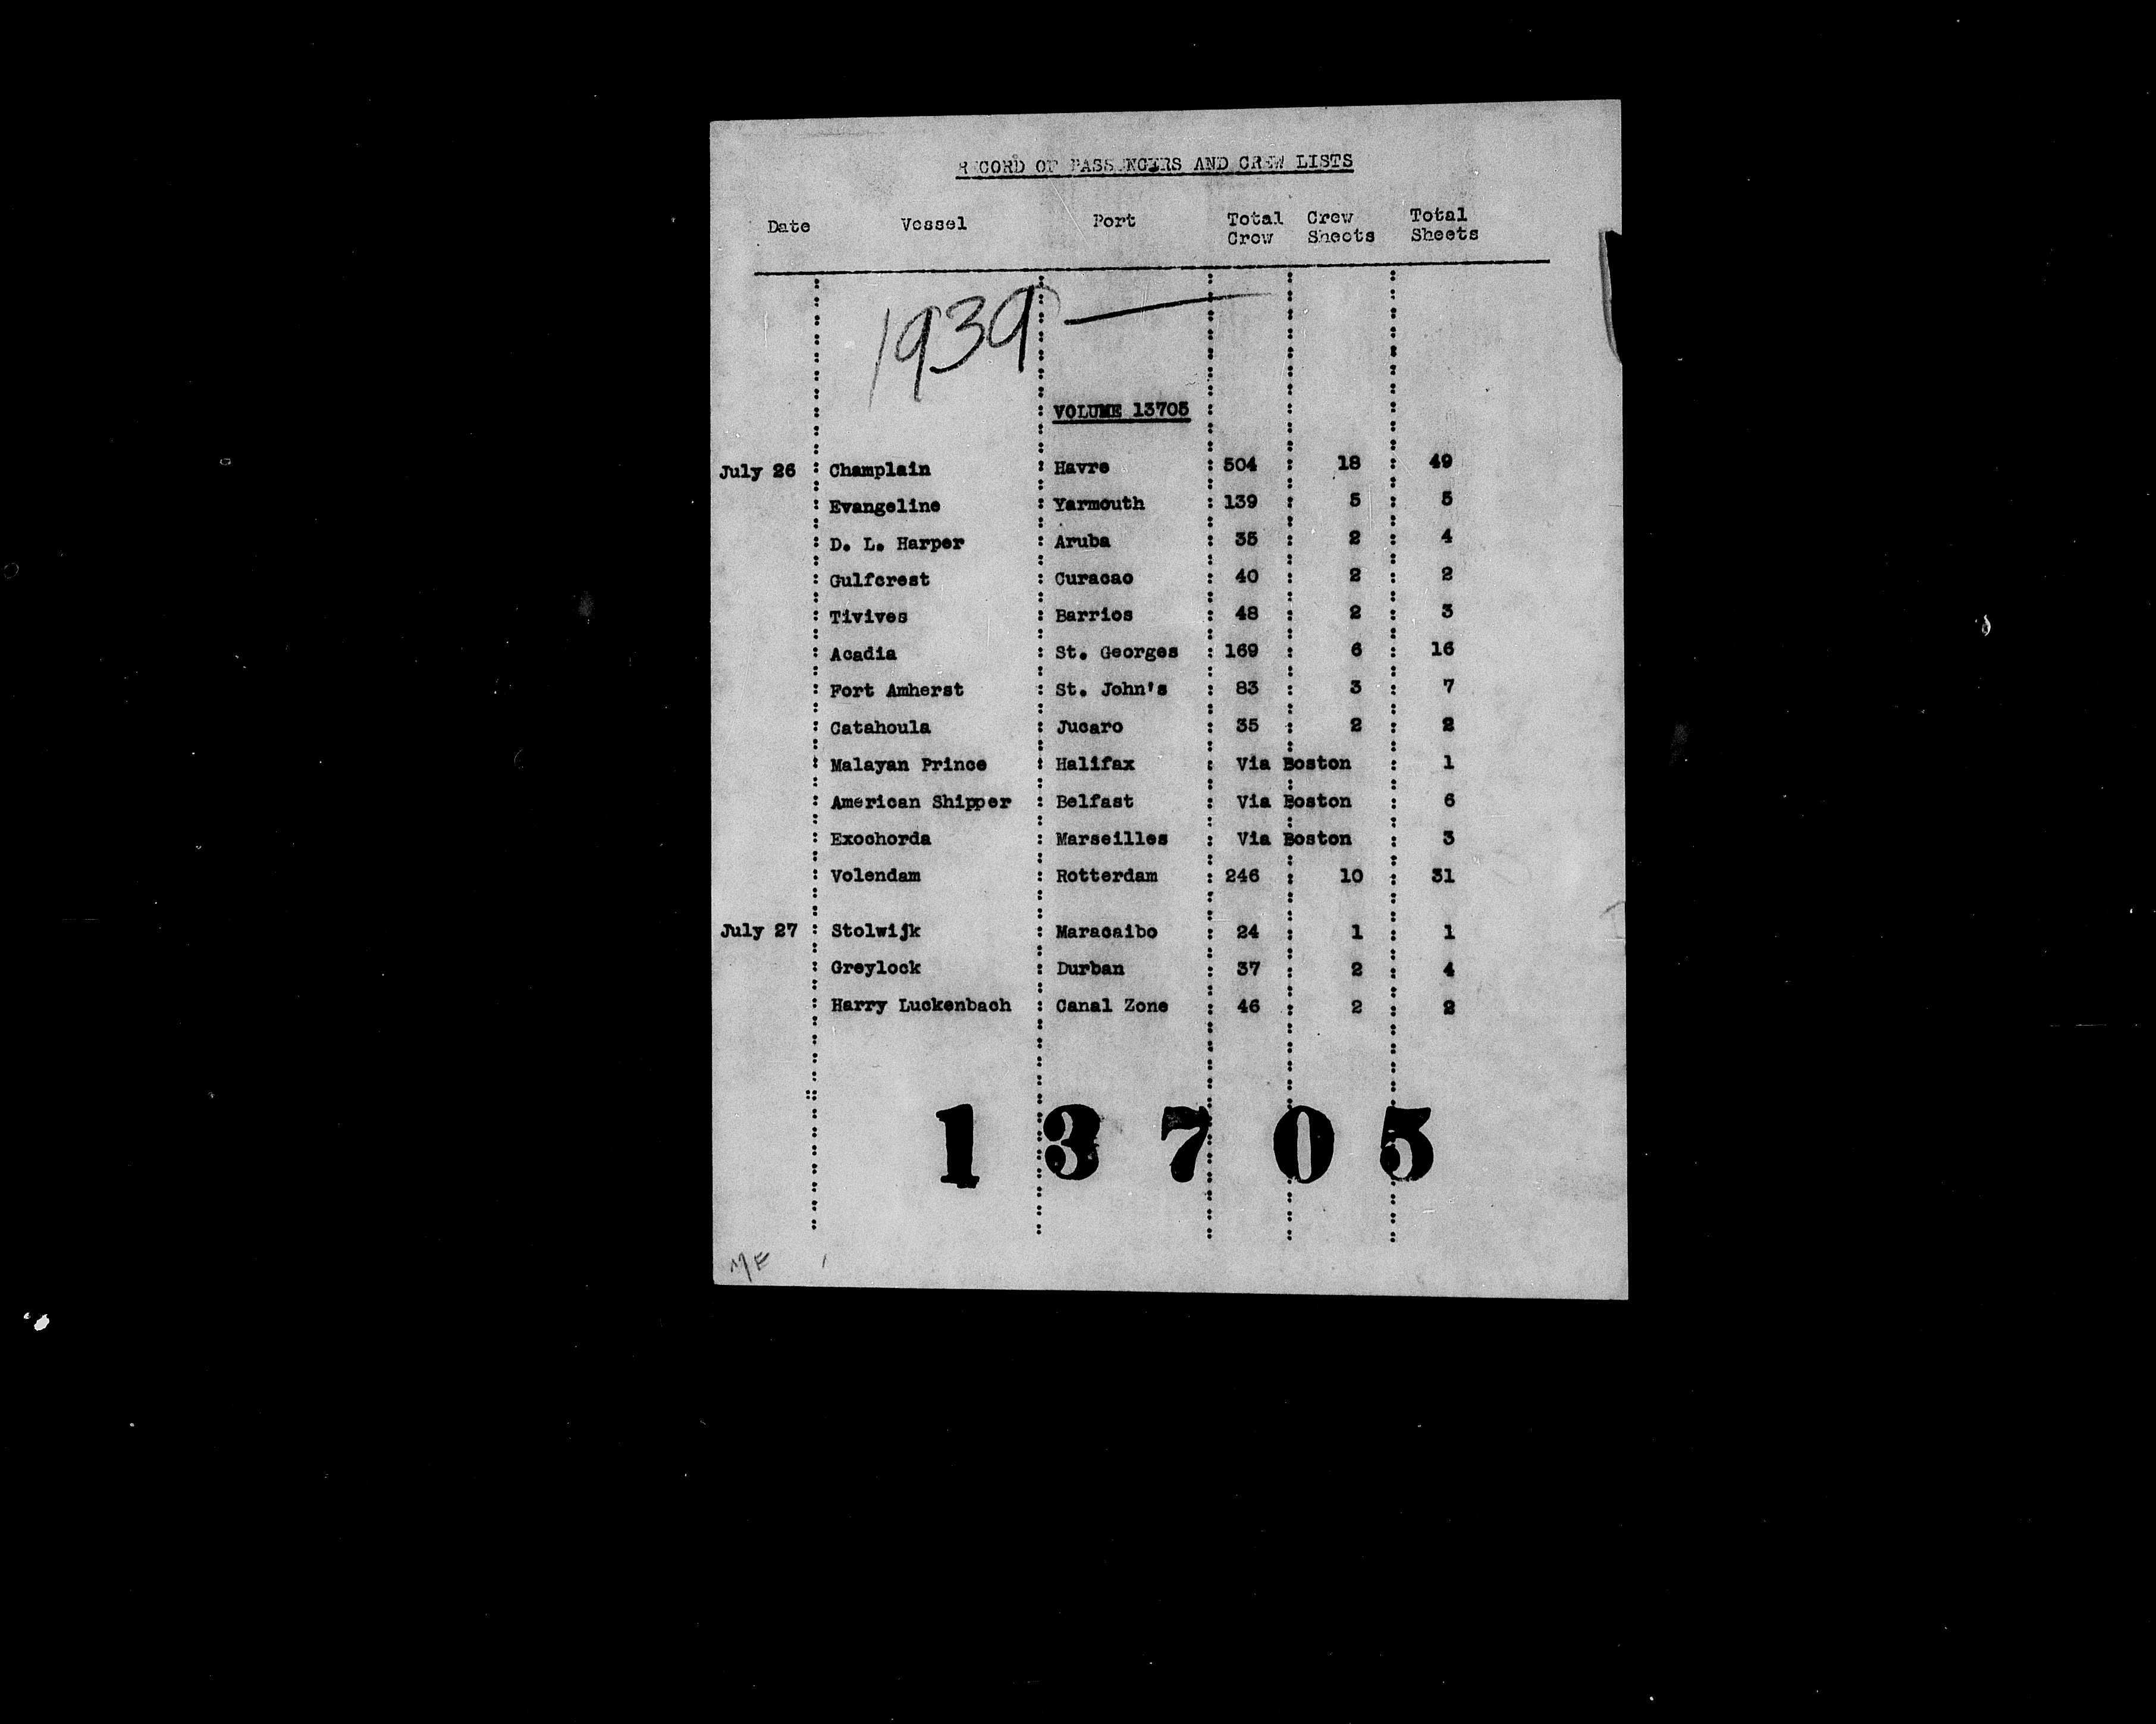 RECORD OF PASSENGERS AND CREW LISTS
Date Vessel Port Total Crew Crew Sheets Total Sheets
1939 —
VOLUME 13705
July 26 : Champlain : Havre : 504 : 18 : 49
: Evangeline : Yarmouth : 139 : 5 : 5
: D. L. Harper : Aruba : 35 : 2 : 4
: Gulfcrest : Curacao : 40 : 2 : 2
: Tivives : Barrios : 48 : 2 : 3
: Acadia : St. Georges : 169 : 6 : 16
: Fort Amherst : St. John's : 83 : 3 : 7
: Catahoula : Jucaro : 35 : 2 : 2
: Malayan Prince : Halifax : Via Boston : 1
: American Shipper : Belfast : Via Boston : 6
: Exochorda : Marseilles : Via Boston : 3
: Volendam : Rotterdam : 246 : 10 : 31
July 27 : Stolwijk : Maracaibo : 24 : 1 : 1
: Greylock : Durban : 37 : 2 : 4
: Harry Luckenbach : Canal Zone : 46 : 2 : 2
1 3 7 0 5